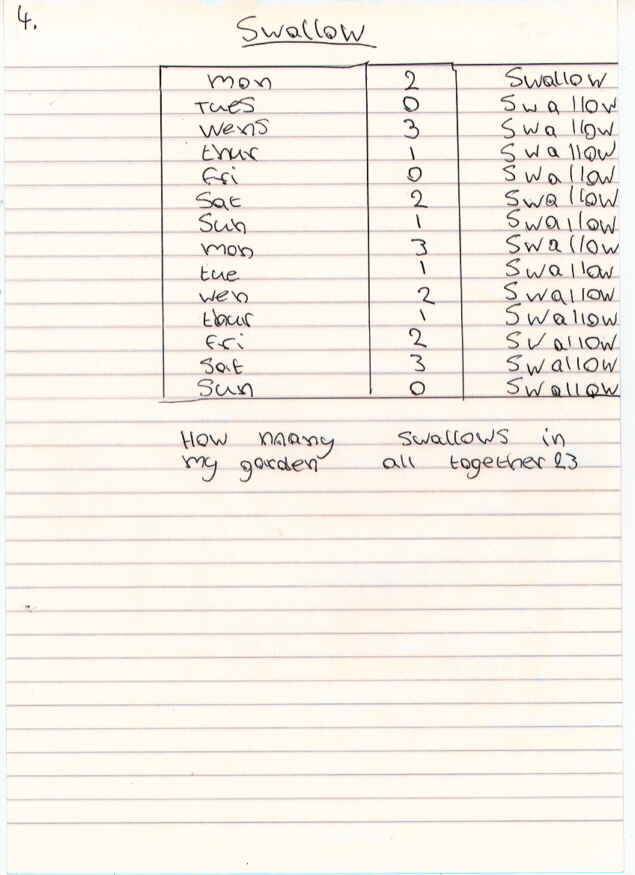 4.
Swallow
mon 2 Swallow
Tues 0 Swallow
wens 3 Swallow
thur 1 Swallow
fri 0 Swallow
Sat 2 Swallow
Sun 1 Swallow
mon 3 Swallow
tue 1 Swallow
wen 2 Swallow
thur 1 Swallow
fri 2 Swallow
Sat 3 Swallow
Sun 0 Swallow
How many swallows in
my garden all together 23